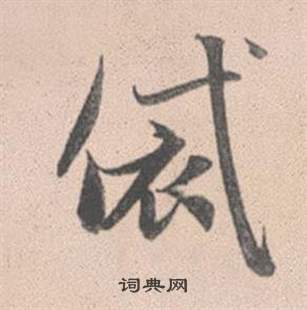 袋
词典网